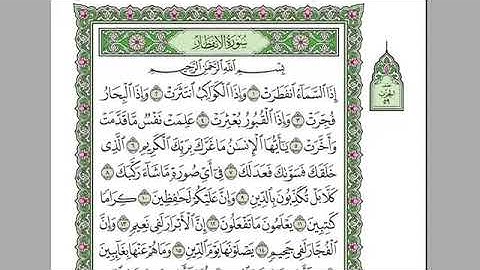 سُورَةُ الانفِطَارِ
بِسْمِ ٱللَّهِ ٱلرَّحْمَٰنِ ٱلرَّحِيمِ
إِذَا ٱلسَّمَآءُ ٱنفَطَرَتْ ١ وَإِذَا ٱلْكَوَاكِبُ ٱنتَثَرَتْ ٢ وَإِذَا ٱلْبِحَارُ
فُجِّرَتْ ٣ وَإِذَا ٱلْقُبُورُ بُعْثِرَتْ ٤ عَلِمَتْ نَفْسٌ مَّا قَدَّمَتْ
وَأَخَّرَتْ ٥ يَٰٓأَيُّهَا ٱلْإِنسَٰنُ مَا غَرَّكَ بِرَبِّكَ ٱلْكَرِيمِ ٦ ٱلَّذِى
خَلَقَكَ فَسَوَّىٰكَ فَعَدَلَكَ ٧ فِىٓ أَىِّ صُورَةٍ مَّا شَآءَ رَكَّبَكَ ٨
كَلَّا بَلْ تُكَذِّبُونَ بِٱلدِّينِ ٩ وَإِنَّ عَلَيْكُمْ لَحَٰفِظِينَ ١٠ كِرَامًا
كَٰتِبِينَ ١١ يَعْلَمُونَ مَا تَفْعَلُونَ ١٢ إِنَّ ٱلْأَبْرَارَ لَفِى نَعِيمٍ ١٣ وَإِنَّ
ٱلْفُجَّارَ لَفِى جَحِيمٍ ١٤ يَصْلَوْنَهَا يَوْمَ ٱلدِّينِ ١٥ وَمَا هُمْ عَنْهَا بِغَآئِبِينَ